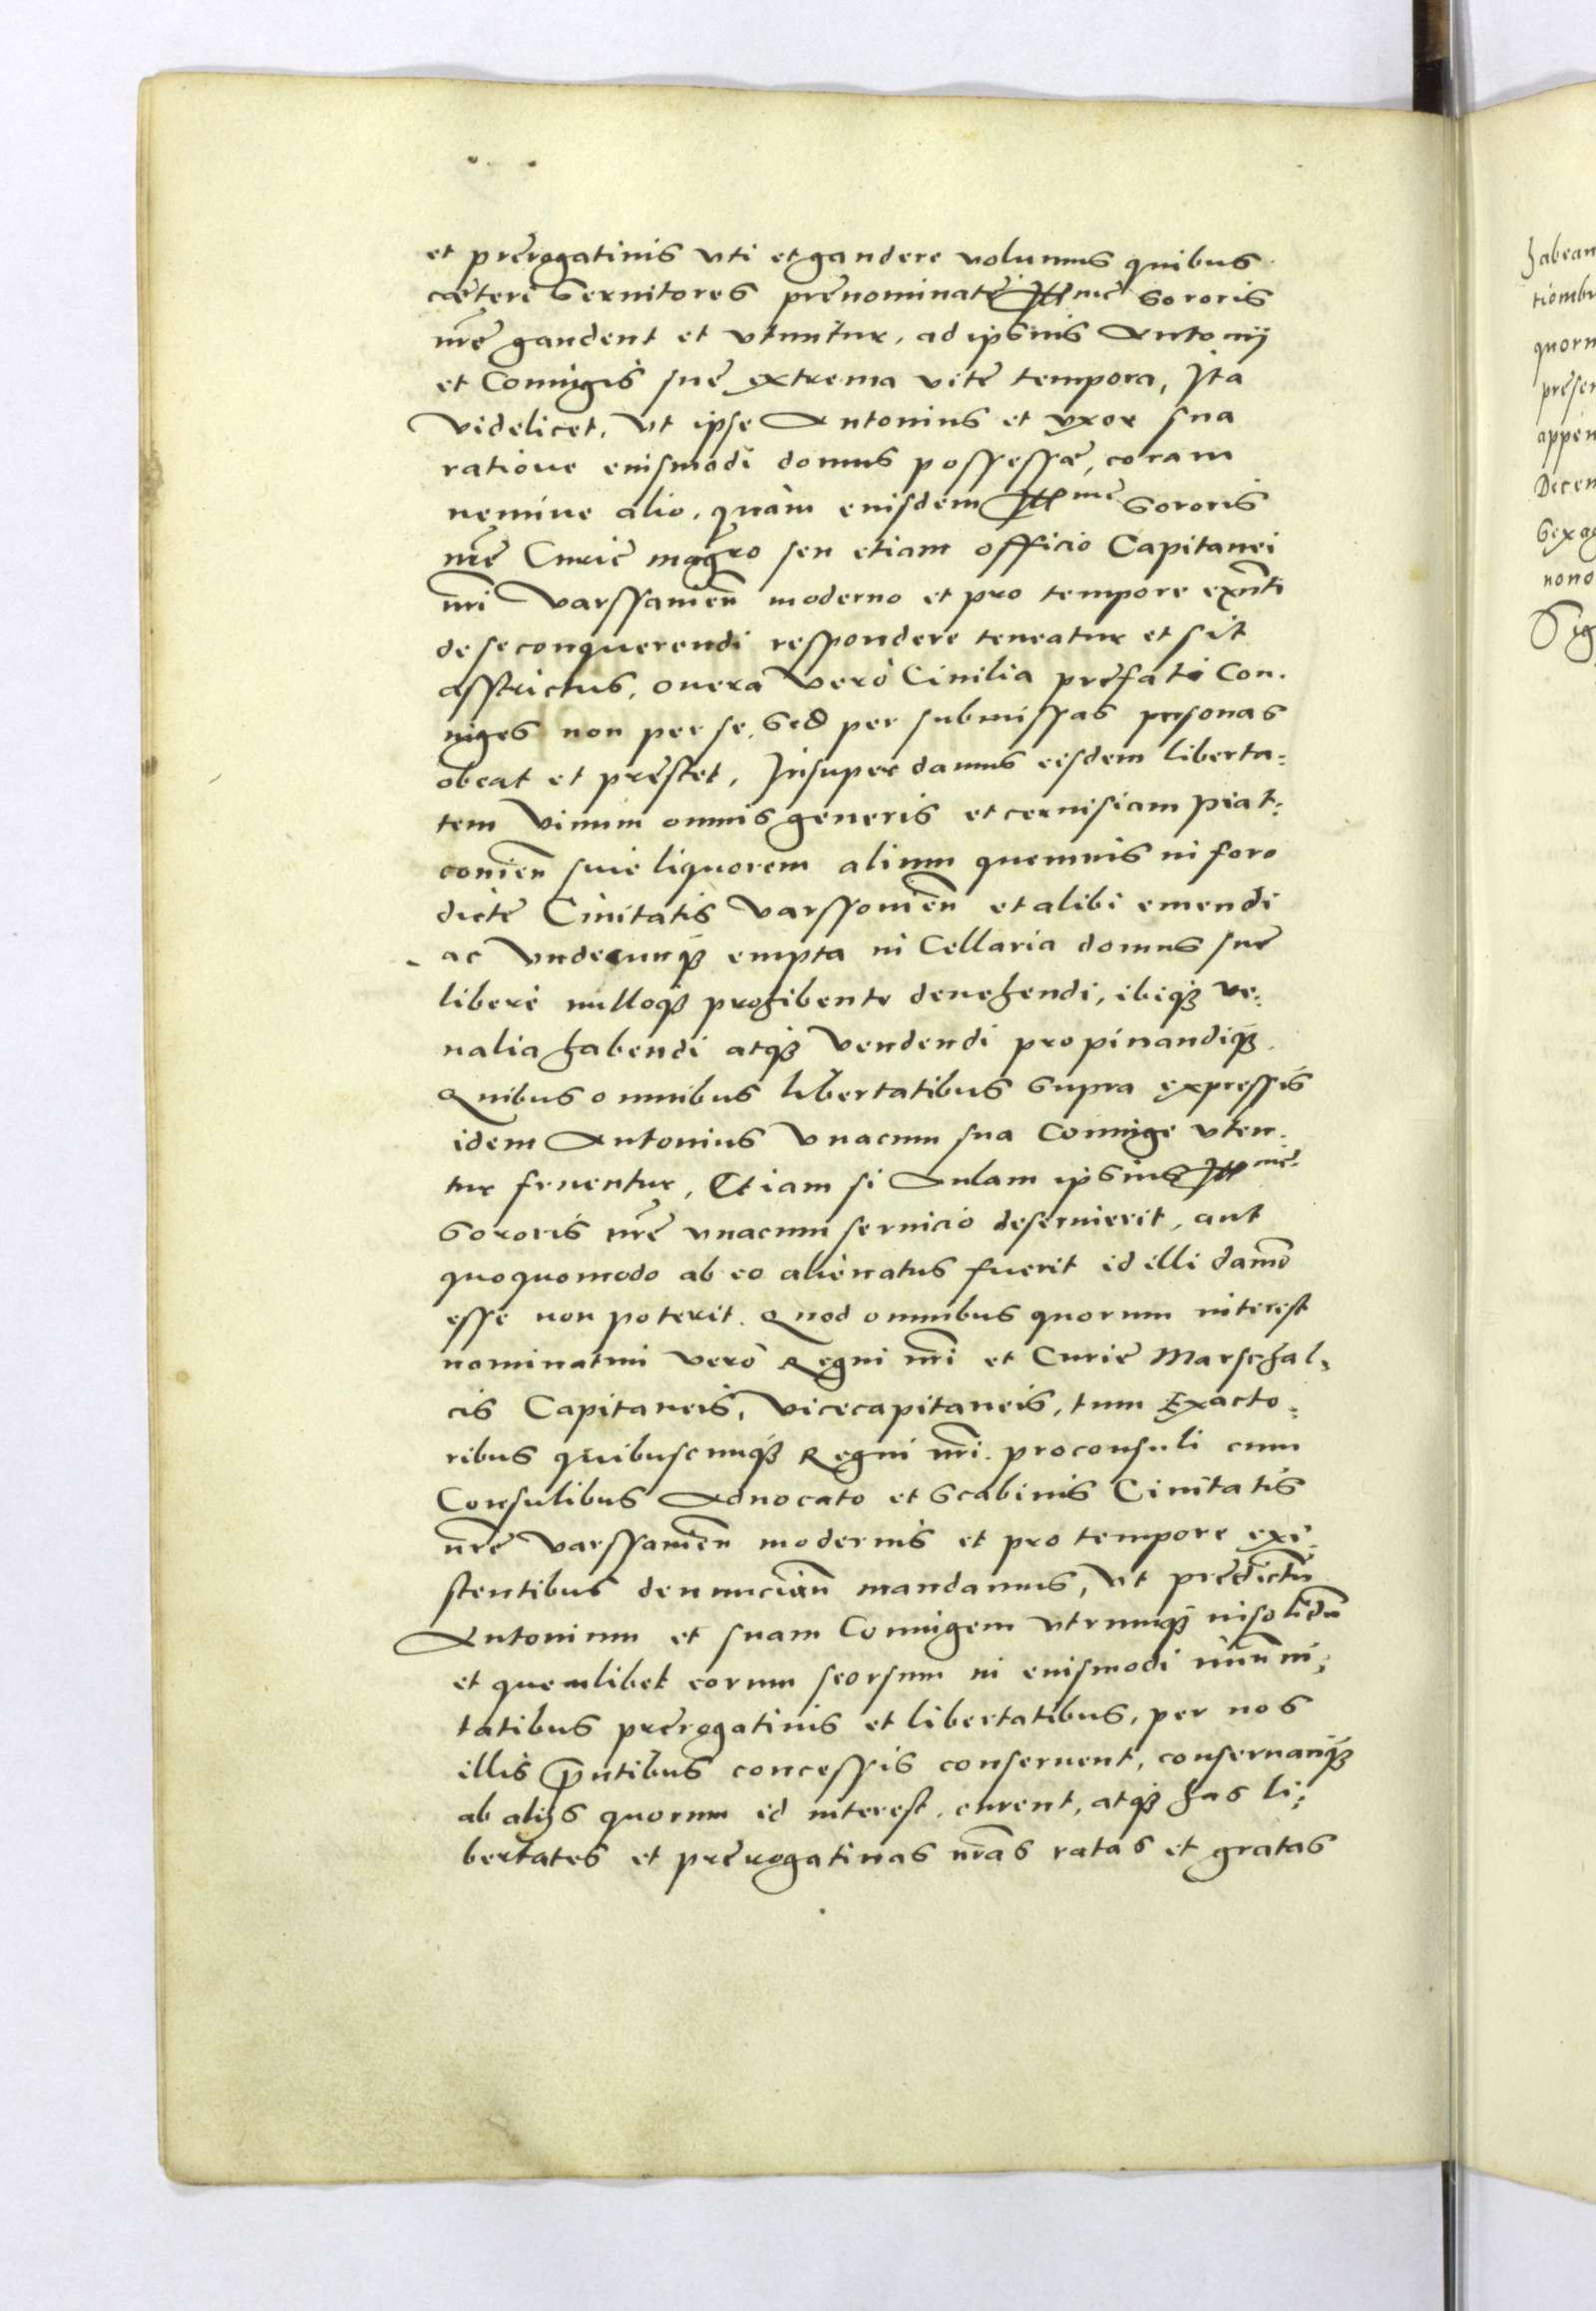 et prerogatiuis vti et gaudere volumus quibus
cæteri Seruitores prenominatę Illme Sororis
nrę gaudent et vtuntur, ad ipsius Antonij
et Coniugis suę extrema vitę tempora, Ita
videlicet, vt ipse Antonius et vxor sua
ratione eiusmodi domus possessæ, coram
nemine alio, quàm eiusdem Illme Sororis
nrę Curię magro seu etiam officio Capitanei
nri Varssauien moderno et pro tempore exnti
de se conquerendi respondere teneatur et sit
asstrictus, onera verò Ciuilia prefati Con-
iuges non per se, Sed per submissas personas
obeat et prestet, Insuper damus eisdem liberta:
tem vinum omnis generis et ceruisiam piat:
couien siue liquorem alium quemuis in foro
dictę Ciuitatis Varssouien et alibi emendi
ac vndecunqȝ empta in Cellaria domus suę
liberè nulloqȝ prohibente deuehendi, ibiqȝ ve:
nalia habendi atqȝ vendendi propinandiqȝ.
Quibus omnibus libertatibus supra expressis
idem Antonius vnacum sua Coniuge vten:
tur fruentur, Etiam si Aulam ipsius Illme
Sororis nrę vnacum seruicio deseruierit, aut
quoquomodo ab eo alienatus fuerit id illi damno
esse non poterit. Quod omnibus quorum interest
nominatim verò Regni nri et Curię Marschal:
cis Capitaneis, vicecapitaneis, tum Exacto:
ribus quibuscunqȝ Regni nri. proconsuli cum
Consulibus Aduocato et Scabinis Ciuitatis
nrę Varssauien modernis et pro tempore exi:
stentibus denuncian mandamus, vt predictu
Antonium et suam Coniugem vtrunqȝ insolidu
et quemlibet eorum seorsum in eiusmodi immuni:
tatibus prerogatiuis et libertatibus, per nos
illis pntibus concessis conseruent, conseruariqȝ
ab alijs quorum id interest, curent, atqȝ has li:
bertates et prerogatiuas nras ratas et gratas